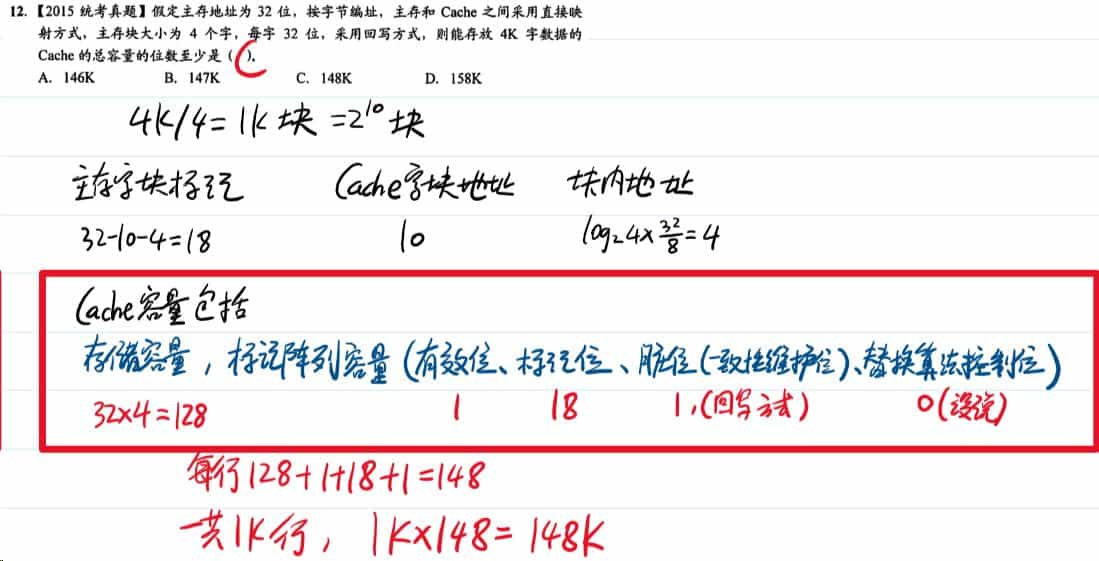 12. 【2015 统考真题】假定主存地址为 32 位，按字节编址，主存和 Cache 之间采用直接映
射方式，主存块大小为 4 个字，每字 32 位，采用回写方式，则能存放 4K 字数据的
Cache 的总容量的位数至少是（ C ）。
A. 146K B. 147K C. 148K D. 158K
4K/4=1K 块 =2^10 块
主存字块标记 Cache字块地址 块内地址
32-10-4=18 10 log₂4×32/8=4
Cache容量包括
存储容量，标记阵列容量（有效位、标记位、脏位（一致性维护位）、替换算法控制位）
32×4=128 1 18 1,（回写方式） 0（没说）
每行128+1+18+1=148
一共1K行，1K×148=148K